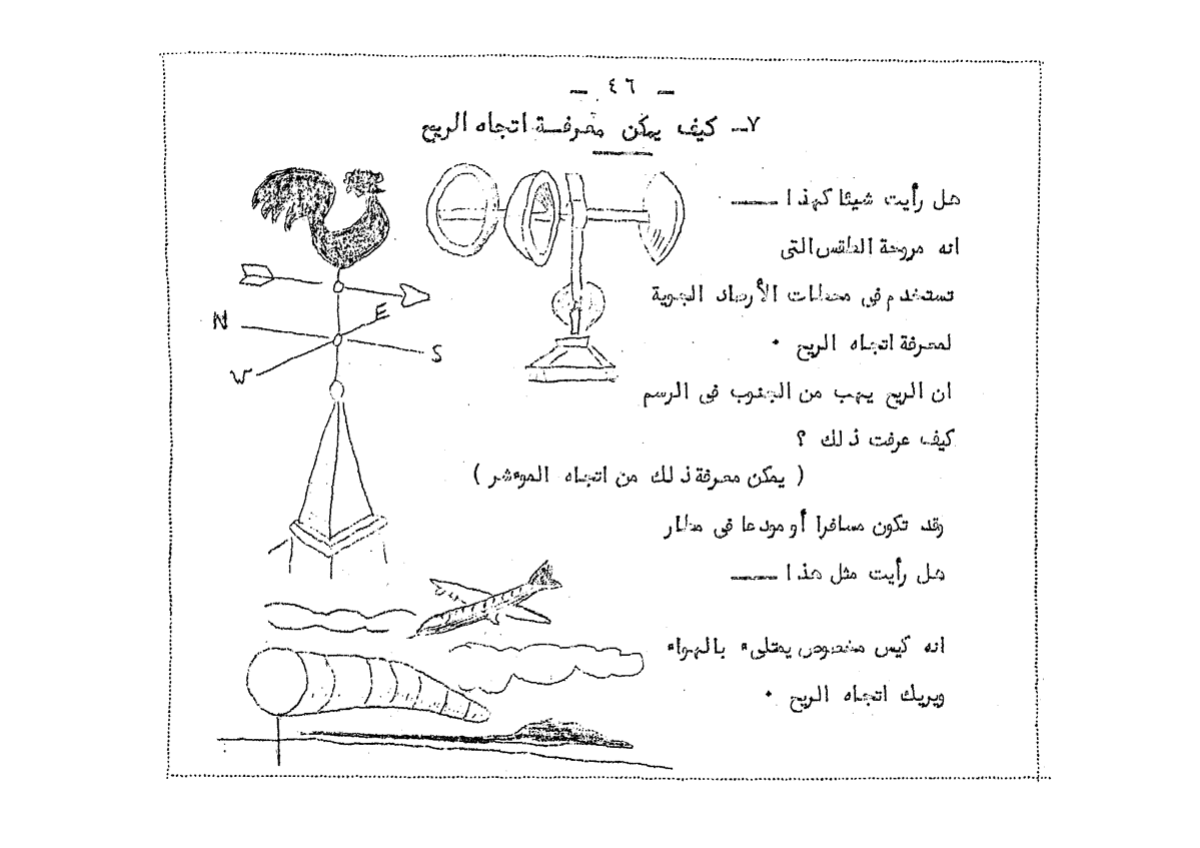 ــ ٤٦ ــ
٧ــ كيف يمكن معرفة اتجاه الريح
هل رأيت شيئا كهذا ــــــ
انه مروحة الطقس التى
تستخدم فى محطات الأرصاد الجوية
لمعرفة اتجاه الريح ٠
ان الريح يهب من الجنوب فى الرسم
كيف عرفت ذلك ؟
( يمكن معرفة ذلك من اتجاه الموءشر )
وقد تكون مسافرا أو مودعا فى مطار
هل رأيت مثل هذا ــــــ
انه كيس مخصوص يمتلىء بالهواء
ويريك اتجاه الريح ٠
N
E
S
W